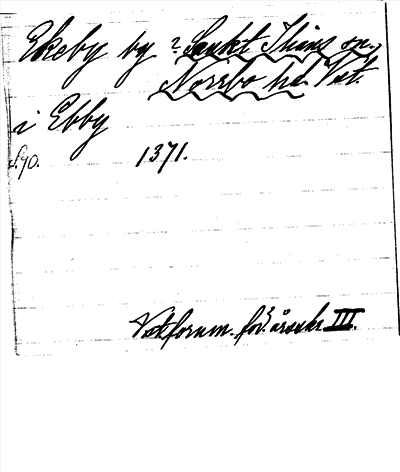 Ekeby by ? Sankt Ilians sn.,
Norrbo hd. Väst.
i Ebby
S. 90. 1371.
Västforum. för. årsskr. III.